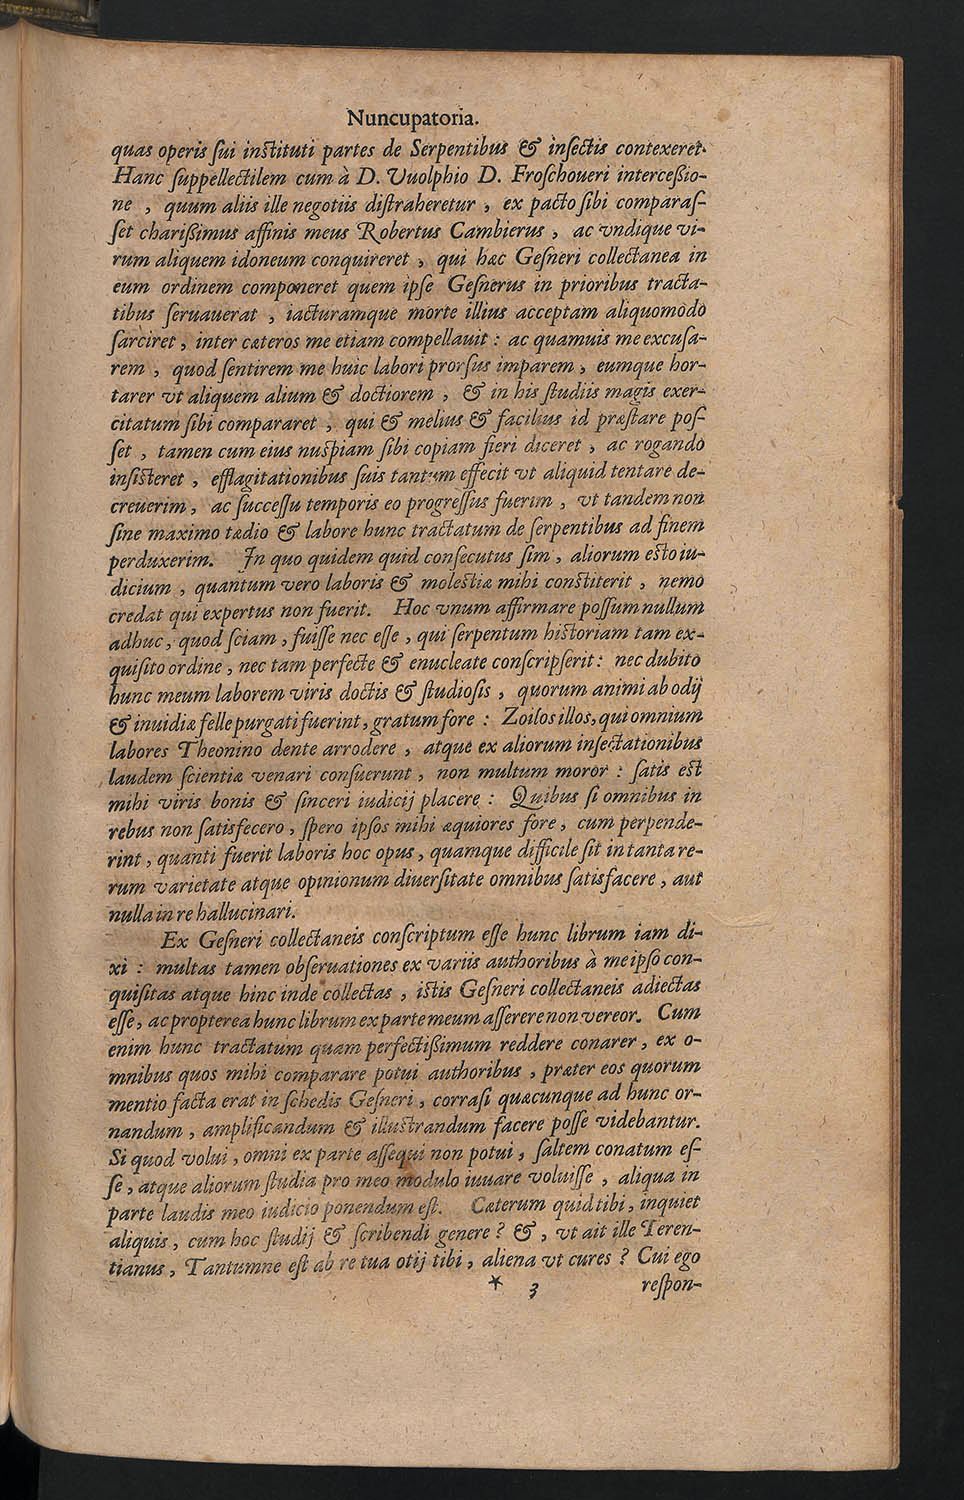 Nuncupatoria.
quas operis ſui inſtituti partes de Serpentibus & inſectis contexeret.
Hanc ſuppellectilem cum à D. Vuolphio D. Froſchoueri interceßio-
ne , quum aliis ille negotiis diſtraheretur , ex pacto ſibi comparaſ-
ſet charißimus affinis meus Robertus Cambierus , ac vndique vi-
rum aliquem idoneum conquireret , qui hæc Geſneri collectanea in
eum ordinem componeret quem ipſe Geſnerus in prioribus tracta-
tibus ſeruauerat , iacturamque morte illius acceptam aliquomodò
ſarciret , inter cæteros me etiam compellauit : ac quamuis me excuſa-
rem , quod ſentirem me huic labori prorſus imparem , eumque hor-
tarer vt aliquem alium & doctiorem , & in his ſtudiis magis exer-
citatum ſibi compararet , qui & melius & facilius id præſtare poſ-
ſet , tamen cum eius nuſpiam ſibi copiam fieri diceret , ac rogando
inſiſteret , efflagitationibus ſuis tantum effecit vt aliquid tentare de-
creuerim , ac ſucceſſu temporis eo progreſſus fuerim , vt tandem non
ſine maximo tædio & labore hunc tractatum de ſerpentibus ad finem
perduxerim. In quo quidem quid conſecutus ſim , aliorum eſto iu-
dicium , quantum vero laboris & moleſtiæ mihi conſtiterit , nemo
credat qui expertus non fuerit. Hoc vnum affirmare poſſum nullum
adhuc , quod ſciam , fuiſſe nec eſſe , qui ſerpentum hiſtoriam tam ex-
quiſito ordine , nec tam perfecte & enucleate conſcripſerit : nec dubito
hunc meum laborem viris doctis & ſtudioſis , quorum animi ab odij
& inuidiæ felle purgati fuerint, gratum fore : Zoilos illos, qui omnium
labores Theonino dente arrodere , atque ex aliorum inſectationibus
laudem ſcientiæ venari conſuerunt , non multum moror : ſatis eſt
mihi viris bonis & ſinceri iudicij placere : Quibus ſi omnibus in
rebus non ſatisfecero , ſpero ipſos mihi æquiores fore , cum perpende-
rint , quanti fuerit laboris hoc opus , quamque difficile ſit in tanta re-
rum varietate atque opinionum diuerſitate omnibus ſatisfacere , aut
nulla in re hallucinari.
Ex Geſneri collectaneis conſcriptum eſſe hunc librum iam di-
xi : multas tamen obſeruationes ex variis authoribus à me ipſo con-
quiſitas atque hinc inde collectas , iſtis Geſneri collectaneis adiectas
eſſe , ac propterea hunc librum ex parte meum aſſerere non vereor. Cum
enim hunc tractatum quam perfectißimum reddere conarer , ex o-
mnibus quos mihi comparare potui authoribus , præter eos quorum
mentio facta erat in ſchedis Geſneri , corraſi quæcunque ad hunc or-
nandum , amplificandum & illuſtrandum facere poſſe videbantur.
Si quod volui , omni ex parte aſſequi non potui , ſaltem conatum eſ-
ſe , atque aliorum ſtudia pro meo modulo iuuare voluiſſe , aliqua in
parte laudis meo iudicio ponendum eſt. Cæterum quid tibi , inquiet
aliquis , cum hoc ſtudij & ſcribendi genere ? & , vt ait ille Teren-
tianus , Tantumne eſt ab re tua otij tibi , aliena vt cures ? Cui ego
* 3 reſpon-